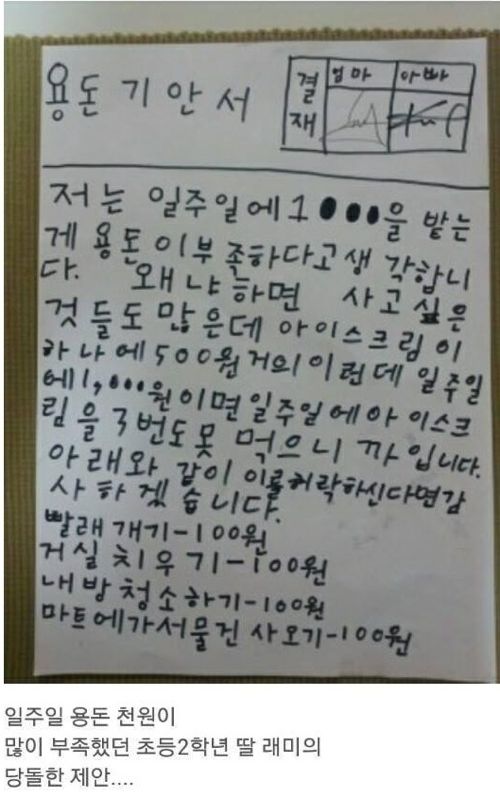 용돈기안서
결재
엄마 아빠
저는 일주일에 1●●●을 받는
게 용돈이부족하다고생각합니
다. 왜냐하면 사고싶은
것들도 많은데 아이스크림이
하나에 500원거의이런데 일주일
에1,●●●원이면일주일에아이스크
림을 3번도못 먹으니 까입니다.
아래와 같이 이를허락하신다면감
사하겠습니다.
빨래개기-100원
거실치우기-100원
내방청소하기-100원
마트에가서물건 사오기-100원
일주일 용돈 천원이
많이 부족했던 초등2학년 딸 래미의
당돌한 제안....